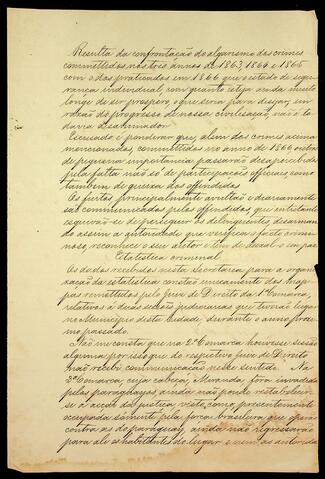 Resulta da confrontação do algarismo dos crimes
committidos nos tres annos de 1863, 1864 e 1865
com o dos praticados em 1866 que o estado de segu-
rança individual, com quanto esteja ainda muito
longe de ser prospero, o que seria para desejar, em
razão do progresso de nossa civilisação, não to-
davia desanimador.
Escusado é ponderar que, alem dos crimes acima
mencionados, committidos no anno de 1866 outros
de pequena importancia passarão desapercebidos
pela falta não só de participações officiaes como
tambem de queixa dos offendidos.
Os furtos principalmente avultão e diariamente
são communicados pelos offendidos, que entretanto
esquivão-se de perseguir os delinquentes, desarman-
do assim a autoridade que verifica o facto crimi-
noso, reconhece o seu autor e tem de deixal-o em paz.
Estatistica criminal
Os dados recebidos nesta Secretaria para a organi-
zação da estatistica constão unicamente dos map-
pas remettidos pelo Juiz de Direito da 1ª Comarca,
relativos á duas sessões judiciarias que tiverão lugar
no Municipio desta Cidade, durante o anno proxi-
mo passado.
Não me consta que na 2ª Comarca houvesse sessão
alguma por isso que do respectivo Juiz de Direito
não recebi communicação neste sentido. Na
3ª Comarca, cuja cabeça, Miranda, fora invadida
pelos paraguayos ainda não poude restabelecer-
se a acção da justiça visto como, presentemente
occupada sómente pela força brasileira que opera
contra as do paraguay, ainda não regressarão
para ali os habitantes do lugar e nem as autorida